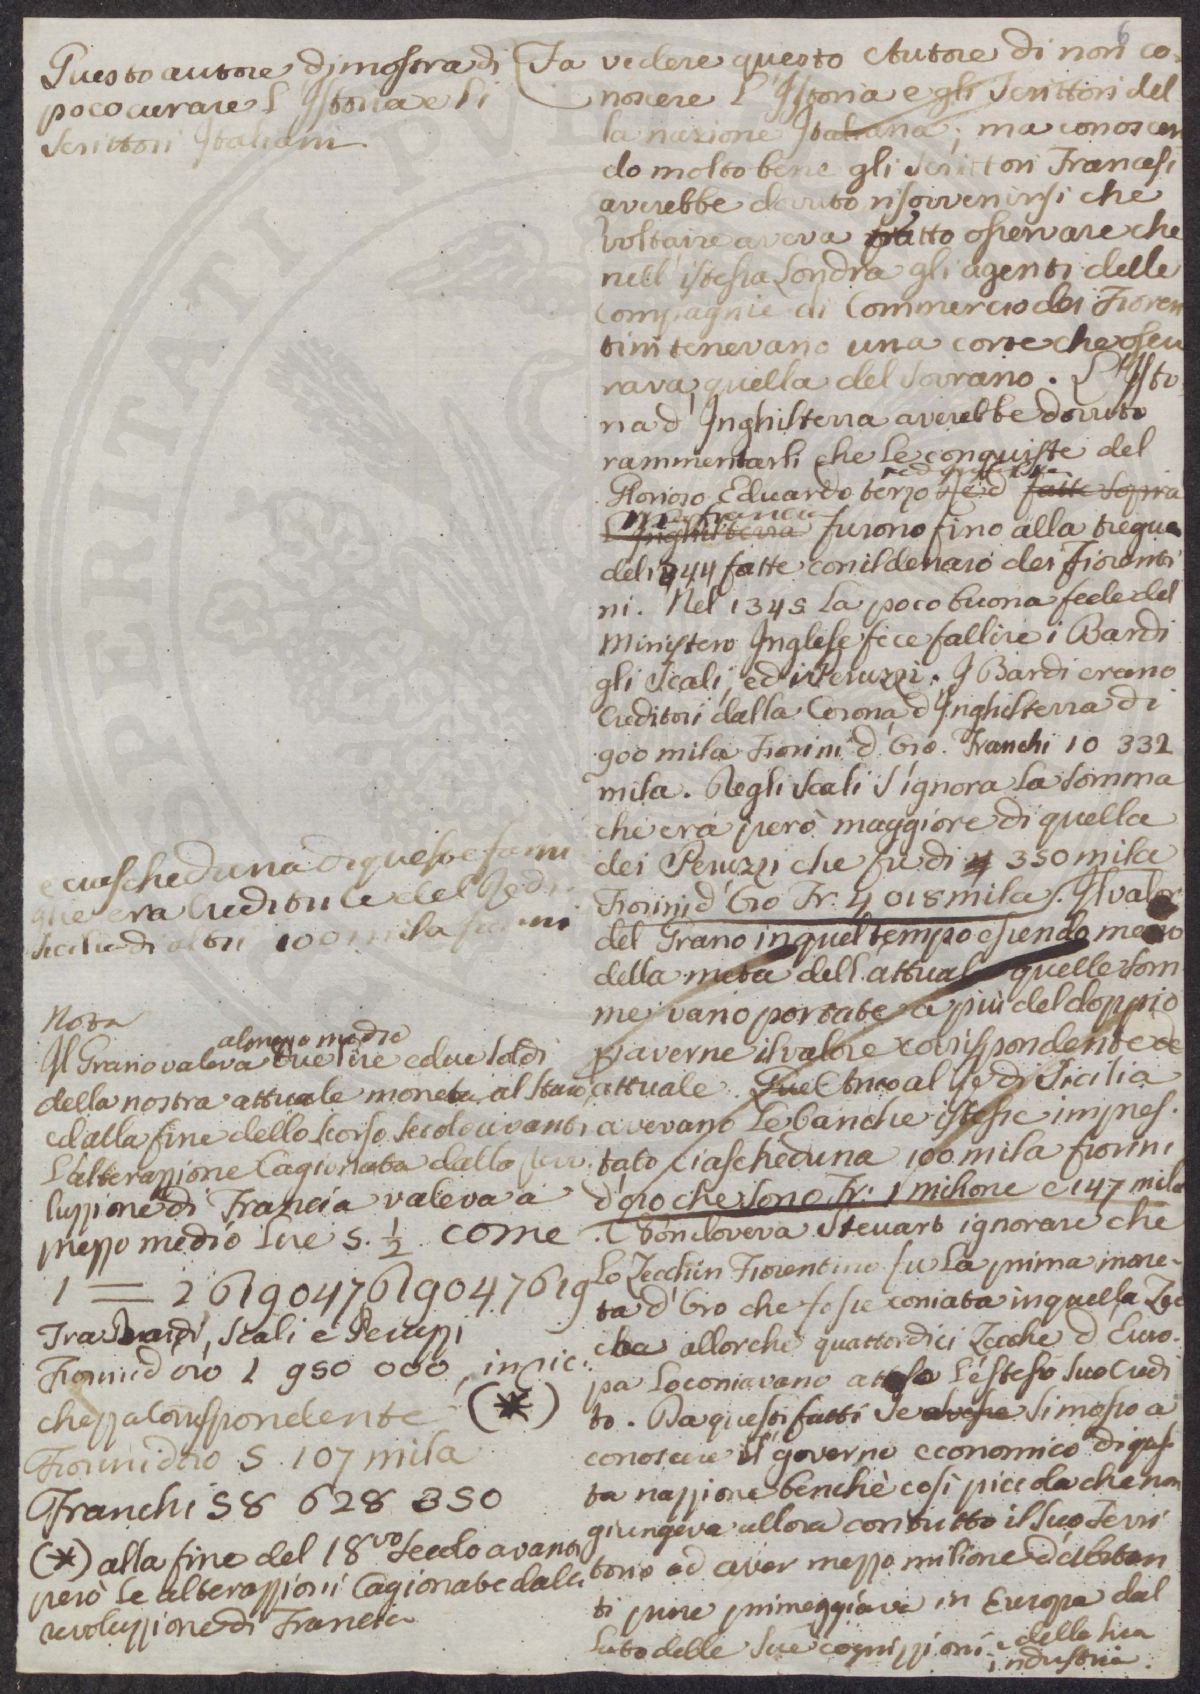 6
Questo autore dimostra di
poco curare l'Istoria e li
Scrittori Italiani
Fa vedere questo Autore di non co-
noscere l'Istoria e gli Scrittori del-
la nazione Italiana; ma conoscen
do molto bene gli Scrittori Francesi
averebbe dovuto risovvenirsi che
Voltaire aveva fatto osservare che
nell'istessa Londra gli agenti delle
Compagnie di Commercio dei Fioren
tini tenevano una corte che oscu
rava quella del Sovrano. L'Isto
ria d'Inghilterra averebbe dovuto
rammentarli che le conquiste del
Glorioso Eduardo terzo fatte sopra
in Francia
l'Inghilterra furono fino alla tregua
del 1344 fatte con il denaro dei Fiorenti
ni. Nel 1345 la poco buona fede del
Ministero Inglese fece fallire i Bardi
gli Scali, ed i Peruzzi. I Bardi erano
Creditori dalla Corona d'Inghilterra di
900 mila Fiorini d'Oro. Franchi 10 332
mila. Degli Scali s'ignora la somma
che era però maggiore di quella
dei Peruzzi che fu di 350 mila
Fiorini d'Oro Fr. 4 018 mila. Il valor
del Grano in quel tempo essendo meno
della metà dell'attual quelle som
me vano portate a più del doppio
p averne il valore corrispondente
attuale. al Re di Sicilia
avevano le banche istesse impres-
tato ciascheduna 100 mila fiorini
d'oro che sono Fr. 1 milione e 147 mila
. Non doveva Steuart ignorare che
lo Zecchin Fiorentino fu la prima mone-
ta d'Oro che fosse coniata in quella Zec
ca allorché quattordici Zecche d'Euro-
pa lo coniavano atteso l'istesso suo Credi
to. Da questi fatti se avesse si mosso a
conoscere il governo economico di ques
ta nazzione benchè così piccola che non
giungeva allora con tutto il suo Terri
torio ad aver mezzo milione d'abitan
ti pure primeggiava in Europa dal
lato delle sue cognizzioni e della sua
industria.
e ciascheduna di queste fami
glie era Creditrice del Re di
Sicilia di altri 100 mila fiorini
Nota
almeno medio
Il Grano valeva due lire e due soldi
della nostra attuale moneta al Staio
e dalla fine dello scorso secolo avanti
l'alterazzione Cagionata dalla revo
luzzione di Francia valeva a
prezzo medio Lire 5. 1/2 come
1 = 2 619047619047619
Tra Bardi, Scali e Peruzzi
Fiorini d'oro 1 950 000, in ric
chezza Corrispondente (*)
Fiorini d'oro 5 107 mila
Franchi 58 628 350
(*) alla fine del 18vo Secolo avanti
però le alterazzioni Cagionate dalla
revoluzzione di Francia